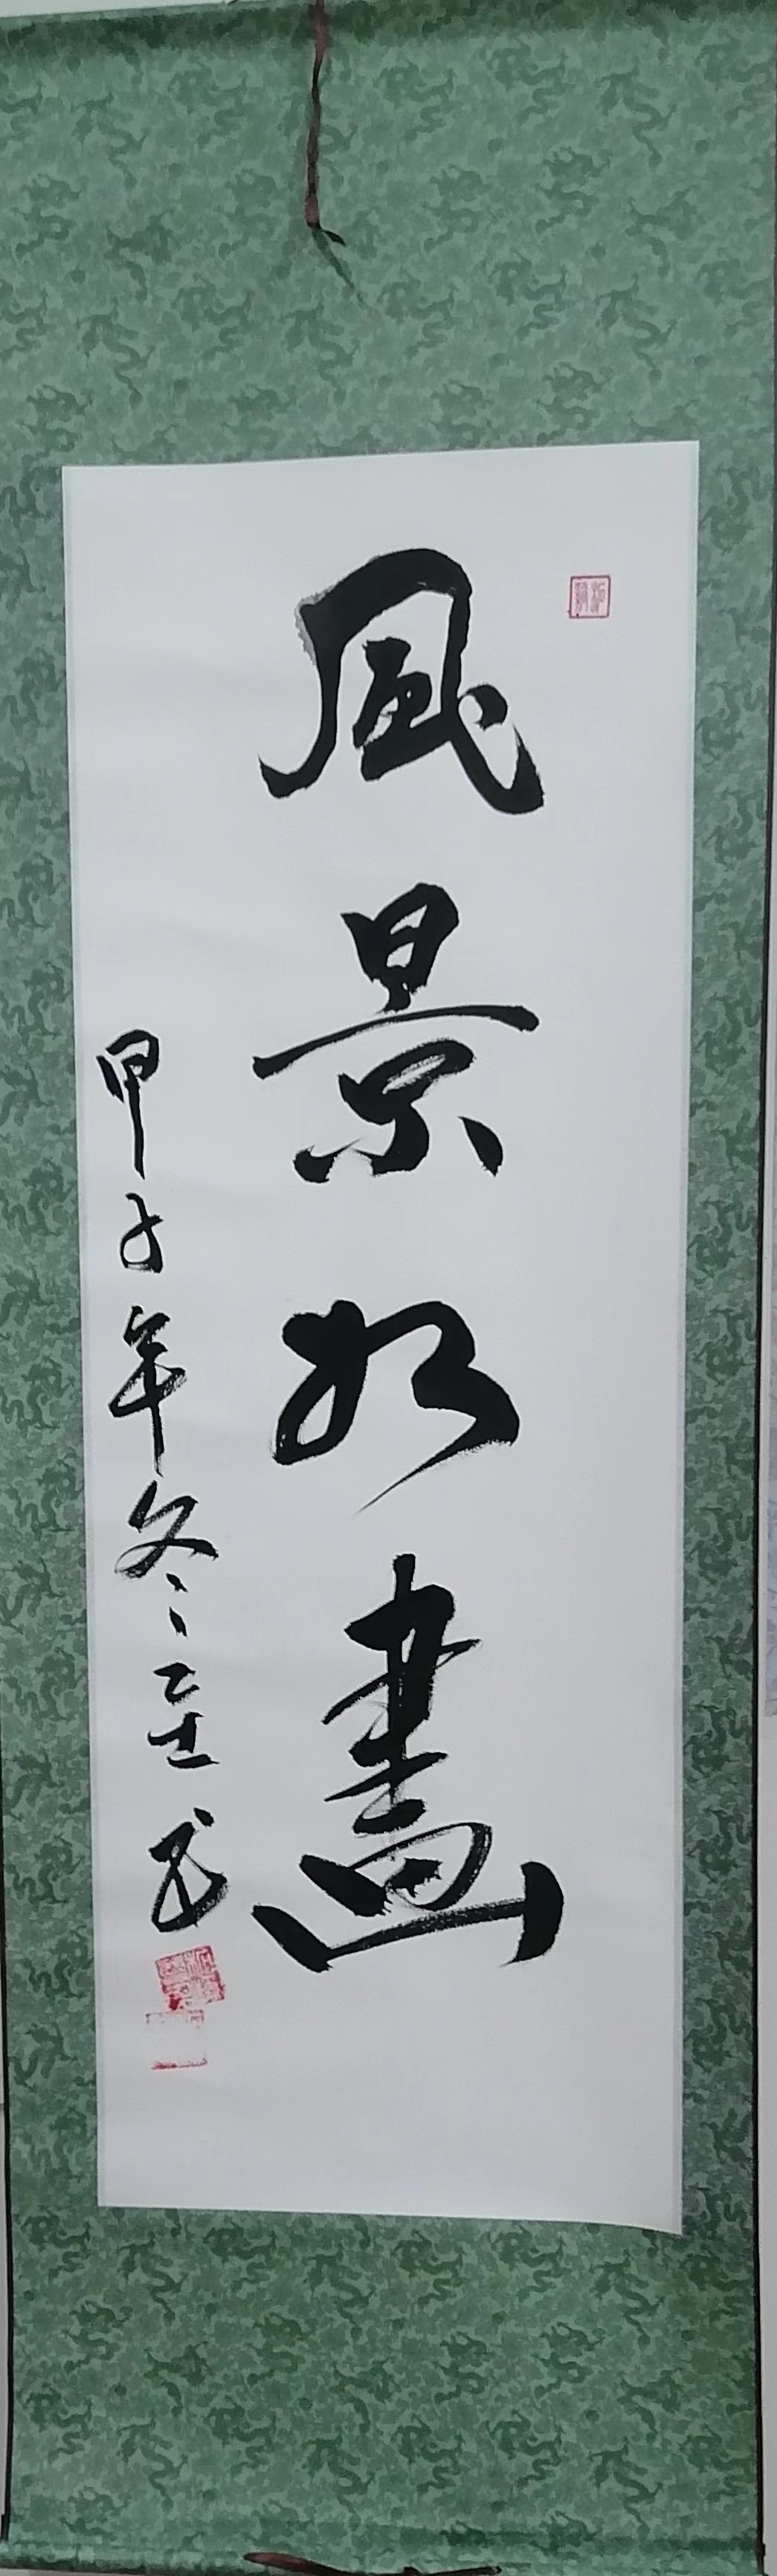 風景如畫
甲子年冬